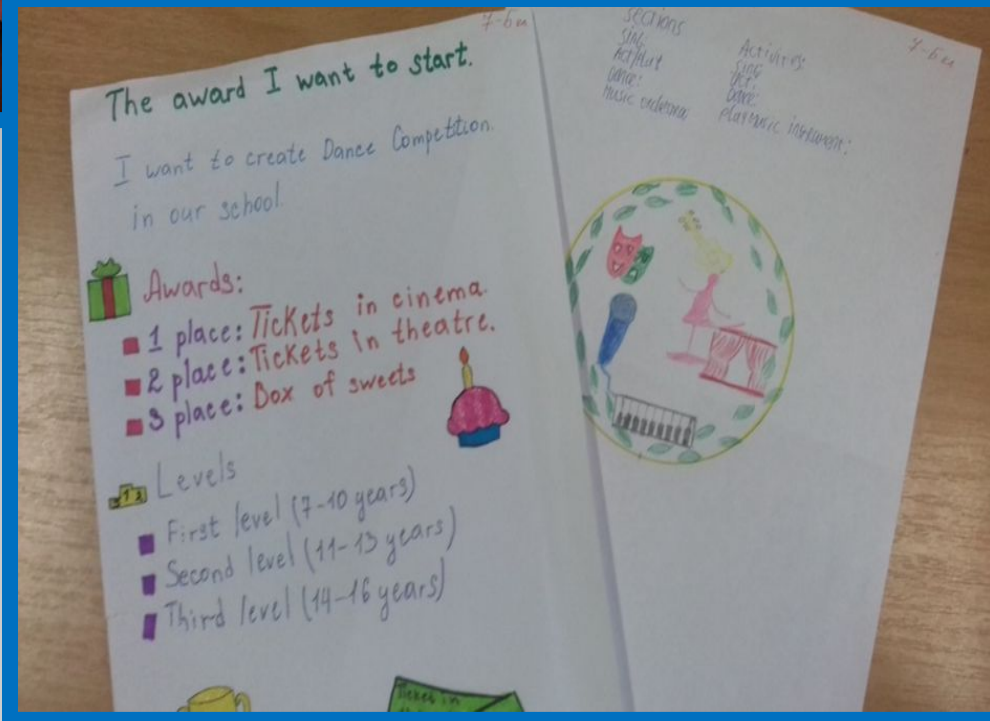 7-Би
The award I want to start.
I want to create Dance Competition
in our school.
Awards:
1 place: Tickets in cinema.
2 place: Tickets in theatre.
3 place: Box of sweets
1 3
Levels
First level (7-10 years)
Second level (11-13 years)
Third level (14-16 years)
Ticket in
7-Би
Sections
Sing:
Dance:
Music
Activities:
Sing
Act:
Dance:
play music instrument: